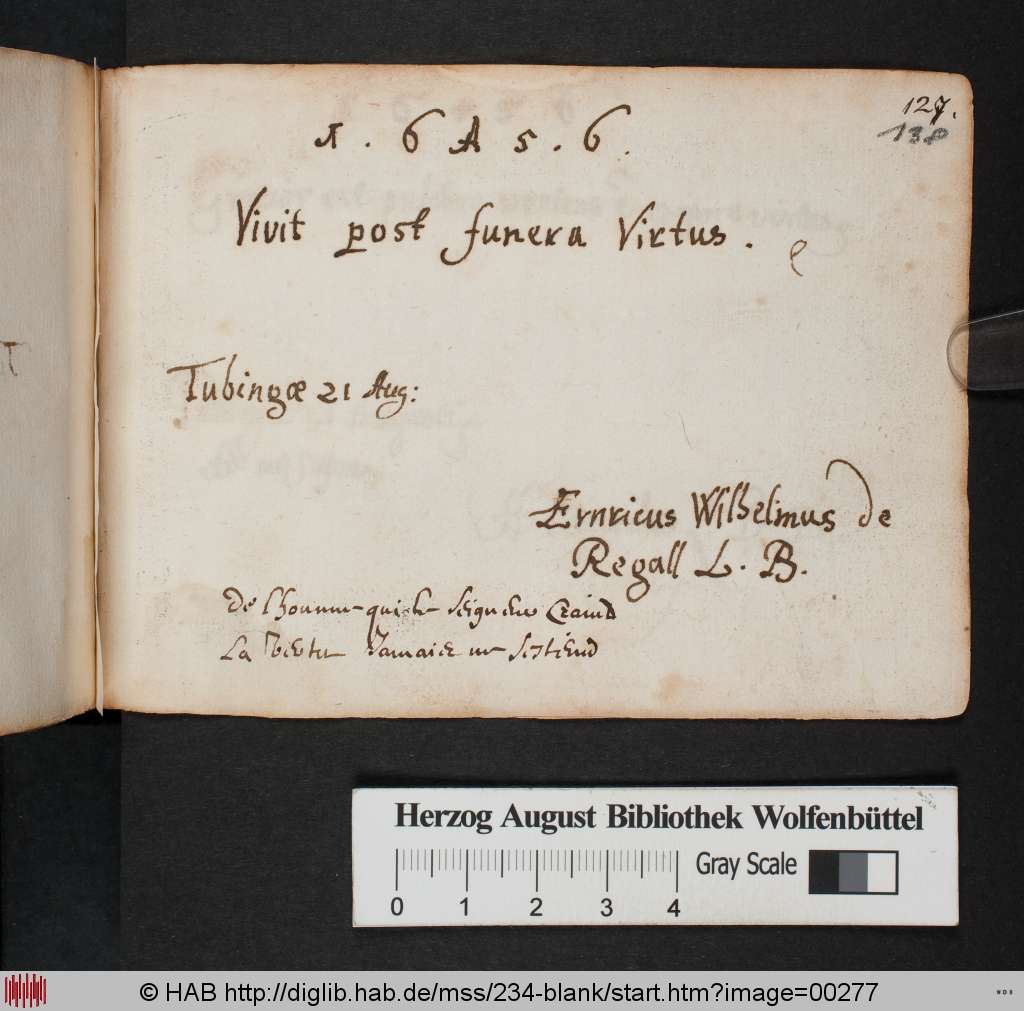 127.
138
1 . 6 A 5 . 6 .
Vivit post funera Virtus .
Tubingæ 21 Aug:
Ernricus Wilhelmus de
Regall L. B.
de lhomme qui le seigneur Craind
La vertu Jamais ne
Herzog August Bibliothek Wolfenbüttel
Gray Scale
0 1 2 3 4
© HAB http://diglib.hab.de/mss/234-blank/start.htm?image=00277